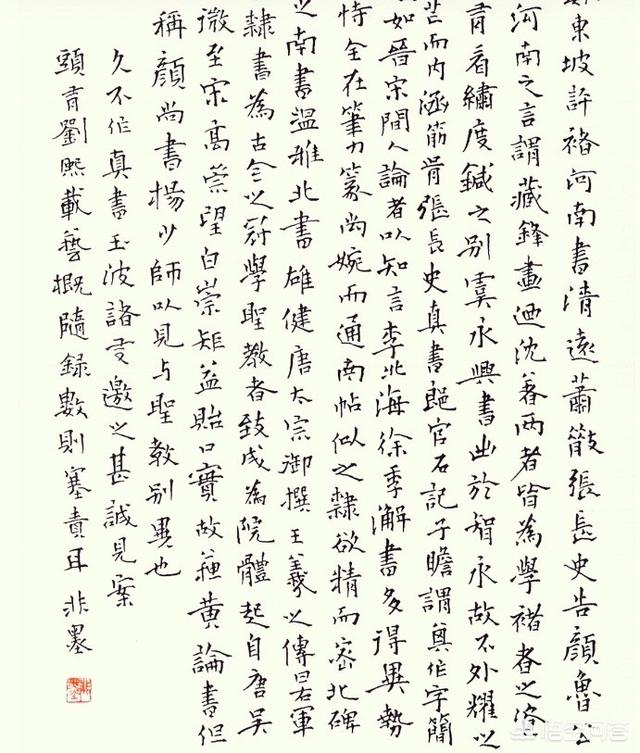 東坡評褚河南書清遠蕭散張長史告顏魯公
河南之言謂藏鋒畫迺沈著兩者皆為學褚者之津
有看繡度鍼之別虞永興書出於智永故不外耀以
芒而内涵筋骨張長史真書郎官石記子瞻謂其作字簡
如晉宋間人論者以知言李北海徐季海書多得異勢
恃全在筆力篆尚婉而通南帖似之隸欲精而密北碑
之南書溫雅北書雄健唐太宗御撰王羲之傳軍
隸書為古今之冠學聖教者致成為院體起自唐吳
微至宋高崇望白崇矩益貽口實故蘇黃論書但
稱顏尚書楊少師以見与聖教別異也
久不作真書玉波諸君邀之甚誠見案
頭有劉熙載藝概隨録數則塞責耳非墨